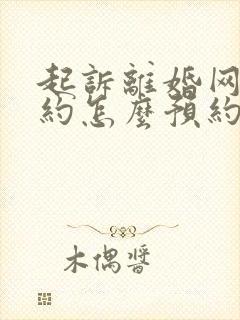 起訴離婚网
約怎麼預約
木偶醬